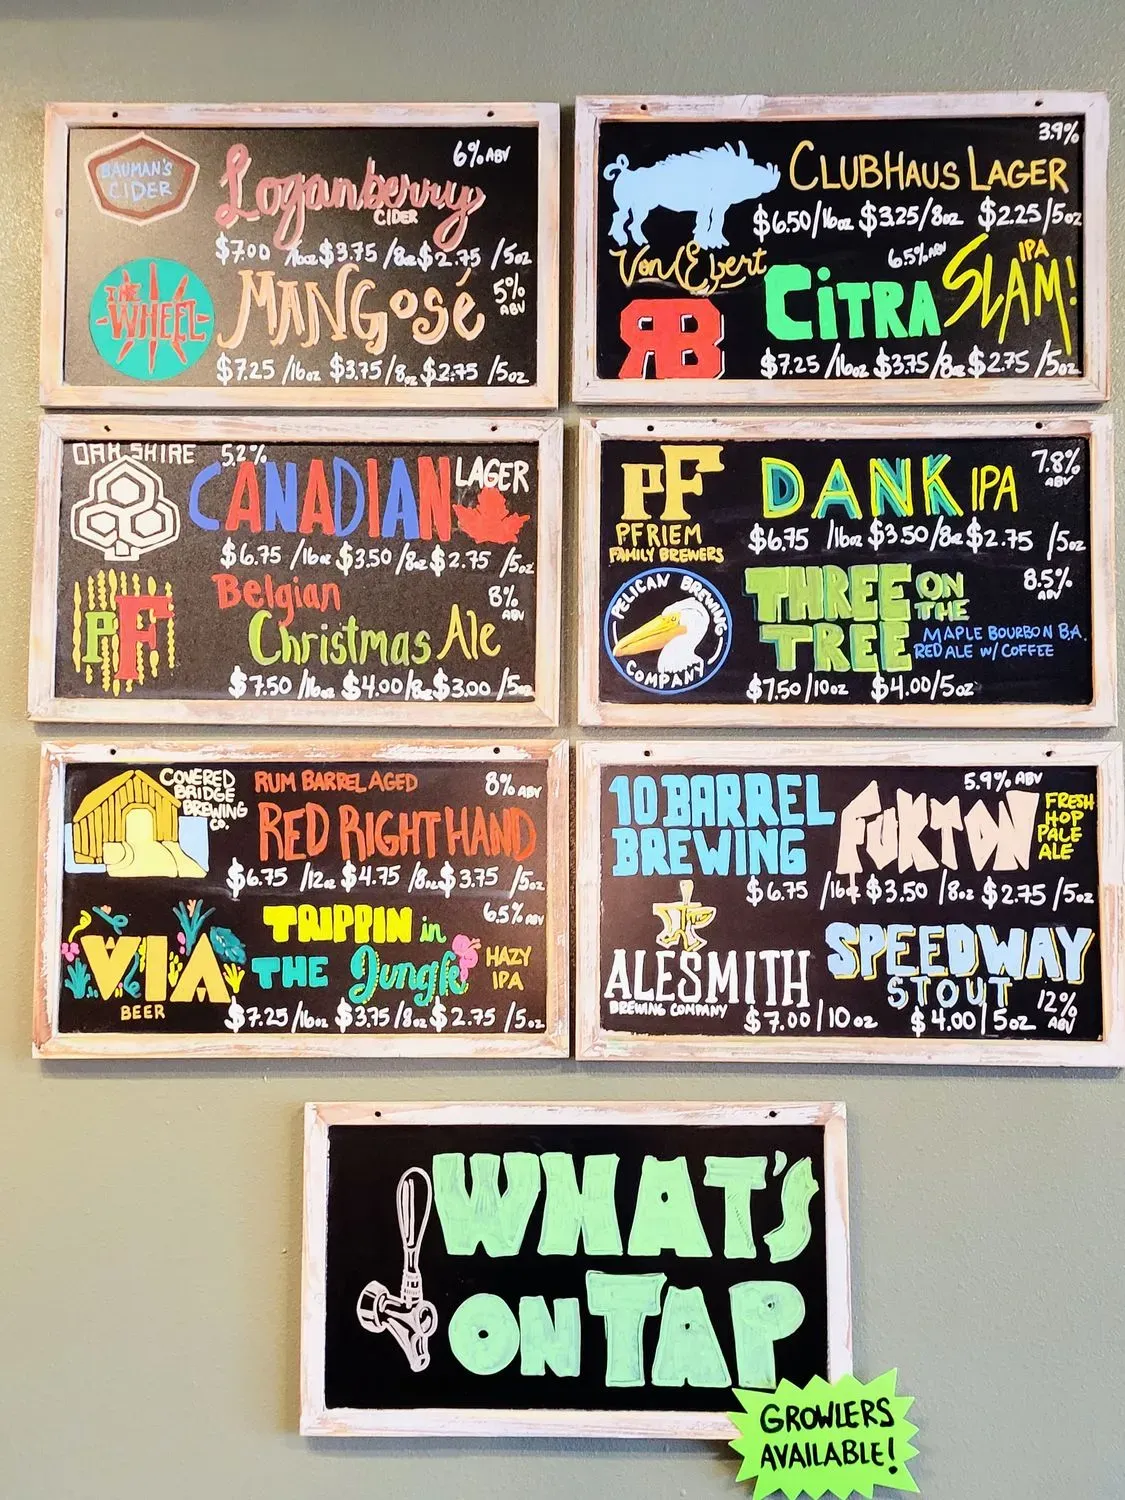 BAUMAN'S
CIDER
Loganberry
CIDER
6% ABV
$7.00 16oz $3.75 /8oz $2.75 /5oz
THE
WHEEL
MANGosé
5%
ABV
$7.25 /16oz $3.75 /8oz $2.75 /5oz
3.9%
CLUBHAUS LAGER
$6.50/16oz $3.25/8oz $2.25/5oz
Von Ebert
6.5% ABV
CiTRA SLAM!
IPA
RB
$7.25 /16oz $3.75 /8oz $2.75 /5oz
OAKSHIRE
5.2%
CANADIAN LAGER
$6.75 /16oz $3.50 /8oz $2.75 /5oz
PF
Belgian
Christmas Ale
8%
ABV
$7.50 /16oz $4.00/8oz $3.00 /5oz
PF
PFRIEM
FAMILY BREWERS
DANK IPA
7.8%
ABV
$6.75 /16oz $3.50 /8oz $2.75 /5oz
PELICAN BREWING
COMPANY
THREE ON
THE
TREE
8.5%
ABV
MAPLE BOURBON B.A.
RED ALE W/ COFFEE
$7.50/10oz $4.00/5oz
COVERED
BRIDGE
BREWING
CO.
RUM BARREL AGED
8% ABV
RED RIGHT HAND
$6.75 /12oz $4.75 /8oz $3.75 /5oz
VIA
BEER
6.5% ABV
TRIPPIN in
THE Jungle
HAZY
IPA
$7.25/16oz $3.75/8oz $2.75 /5oz
10 BARREL
BREWING
5.9% ABV
FUKTON
FRESH
HOP
PALE
ALE
$6.75 /16oz $3.50 /8oz $2.75 /5oz
ALESMITH
BREWING COMPANY
SPEEDWAY
STOUT
12%
ABV
$7.00|10oz $4.00|5oz
WHAT'S
ON TAP
GROWLERS
AVAILABLE!